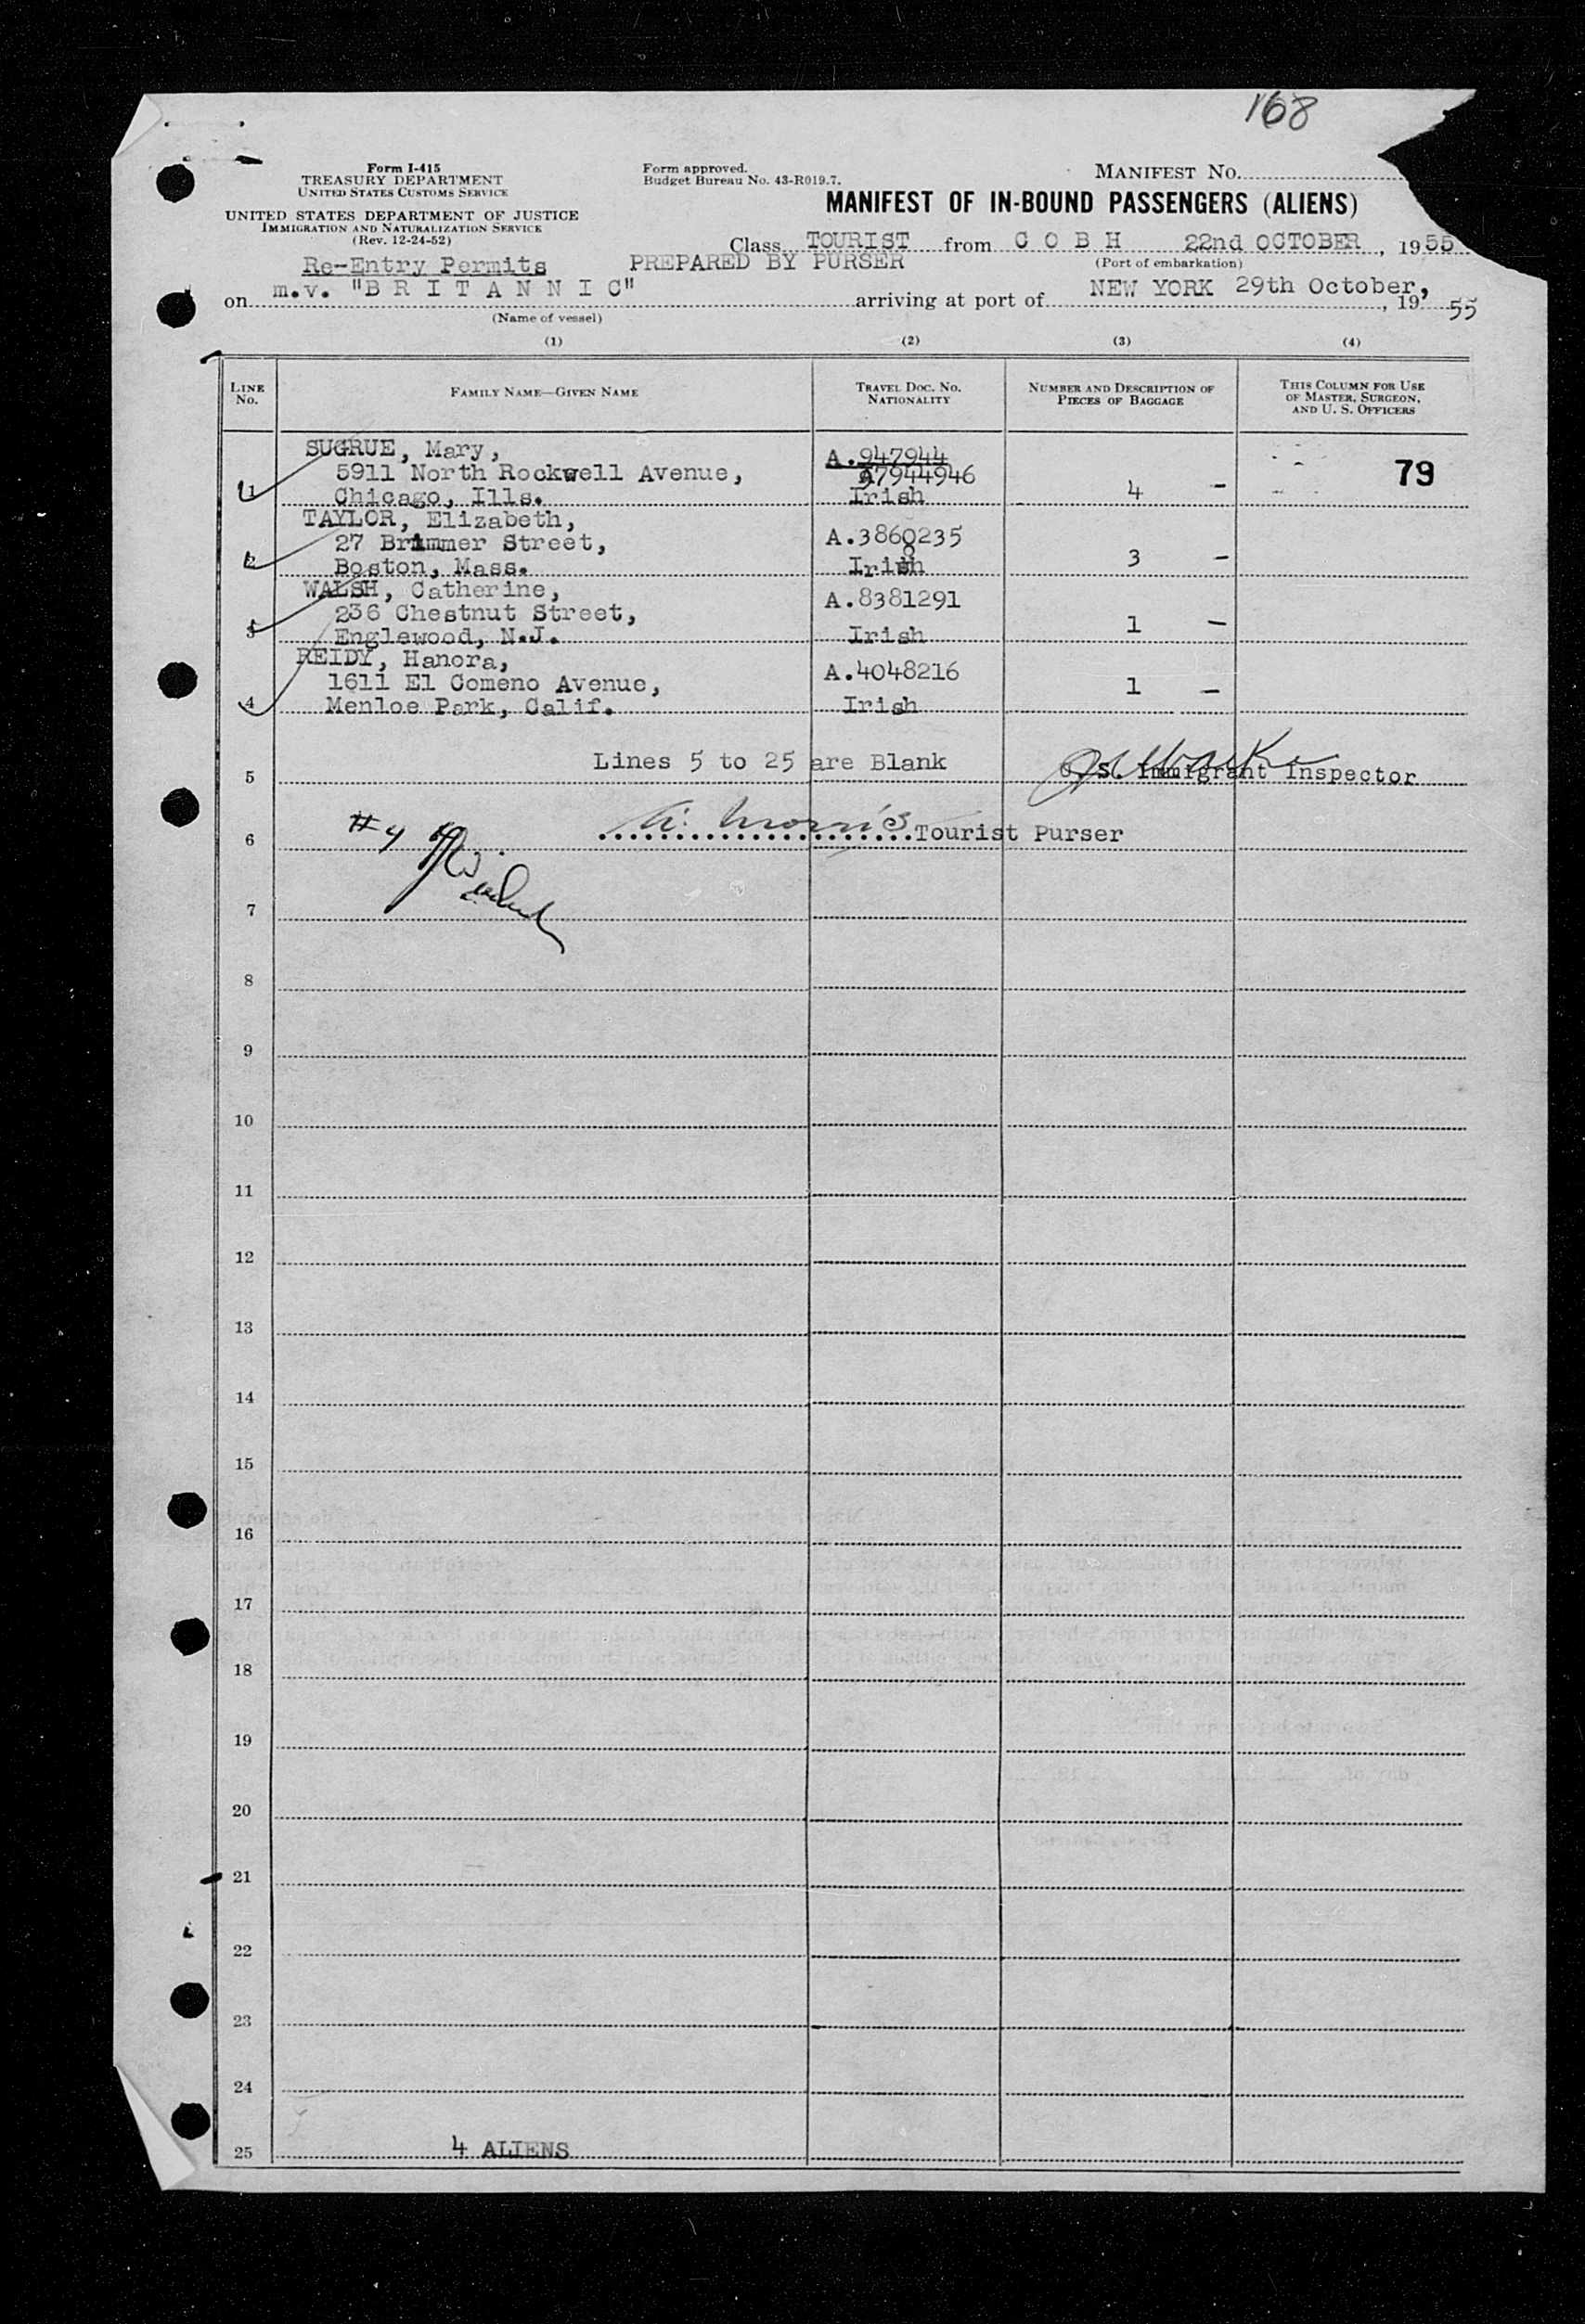 168
Form I-415
TREASURY DEPARTMENT
UNITED STATES CUSTOMS SERVICE
Form approved.
Budget Bureau No. 43-R019.7.
MANIFEST NO.
UNITED STATES DEPARTMENT OF JUSTICE
IMMIGRATION AND NATURALIZATION SERVICE
(Rev. 12-24-52)
MANIFEST OF IN-BOUND PASSENGERS (ALIENS)
Class TOURIST from C O B H 22nd OCTOBER, 1955
Re-Entry Permits PREPARED BY PURSER (Port of embarkation)
on m.v. "B R I T A N N I C" arriving at port of NEW YORK 29th October, 19 55
(Name of vessel)
(1) (2) (3) (4)
LINE NO. FAMILY NAME—GIVEN NAME TRAVEL DOC. NO. NATIONALITY NUMBER AND DESCRIPTION OF PIECES OF BAGGAGE THIS COLUMN FOR USE OF MASTER, SURGEON, AND U. S. OFFICERS
SUGRUE, Mary, A.947944
5911 North Rockwell Avenue, A7944946 79
1 Chicago, Ills. Irish 4 –
TAYLOR, Elizabeth,
27 Brimmer Street, A.3860235
2 Boston, Mass. Irish 3 –
WALSH, Catherine, A.8381291
236 Chestnut Street,
3 Englewood, N.J. Irish 1 –
REIDY, Hanora, A.4048216
1611 El Comeno Avenue, 1 –
4 Menloe Park, Calif. Irish
Lines 5 to 25 are Blank
5 U.S. Immigrant Inspector
6 #4 Tourist Purser
7
8
9
10
11
12
13
14
15
16
17
18
19
20
21
22
23
24
25 4 ALIENS